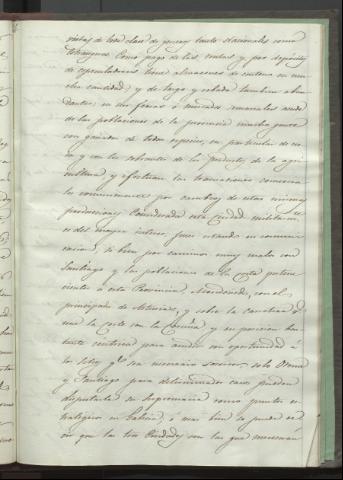 vistas de toda clase de generos tanto Nacionales como
Estrangeros. Como pago de las rentas y por deposito
de especuladores tiene almacenes de centeno en mu-
cha cantidad; y de trigo y cebada tambien abun-
dantes; en sus ferias ó mercados semanales acude
de las poblaciones de la provincia mucha gente
con ganados de todas especies, en particular de cer-
da y con los sobrantes de los productos de la agri-
cultura y efectuan las transacciones comercia-
les comunmente por cambios de estas mismas
producciones. Considerada esta Ciudad militarm.te
es del mayor interes, pues estando en comuni-
cacion, si bien por caminos muy malos con
Santiago y las poblaciones de la costa pertene-
cientes á esta Provincia, Mondoñedo, con el
principado de Asturias, y sobre la carretera q.e
une la Corte con la Coruña, y en posicion bas-
tante centrica para acudir con oportunidad á
los sitios q.e sea necesario socorrer, solo Orense
y Santiago para determinados casos pueden
disputarla su supremacia como puntos es-
trategicos en Galicia, ó mas bien se puede de-
cir que las tres Ciudades son las que merecerian